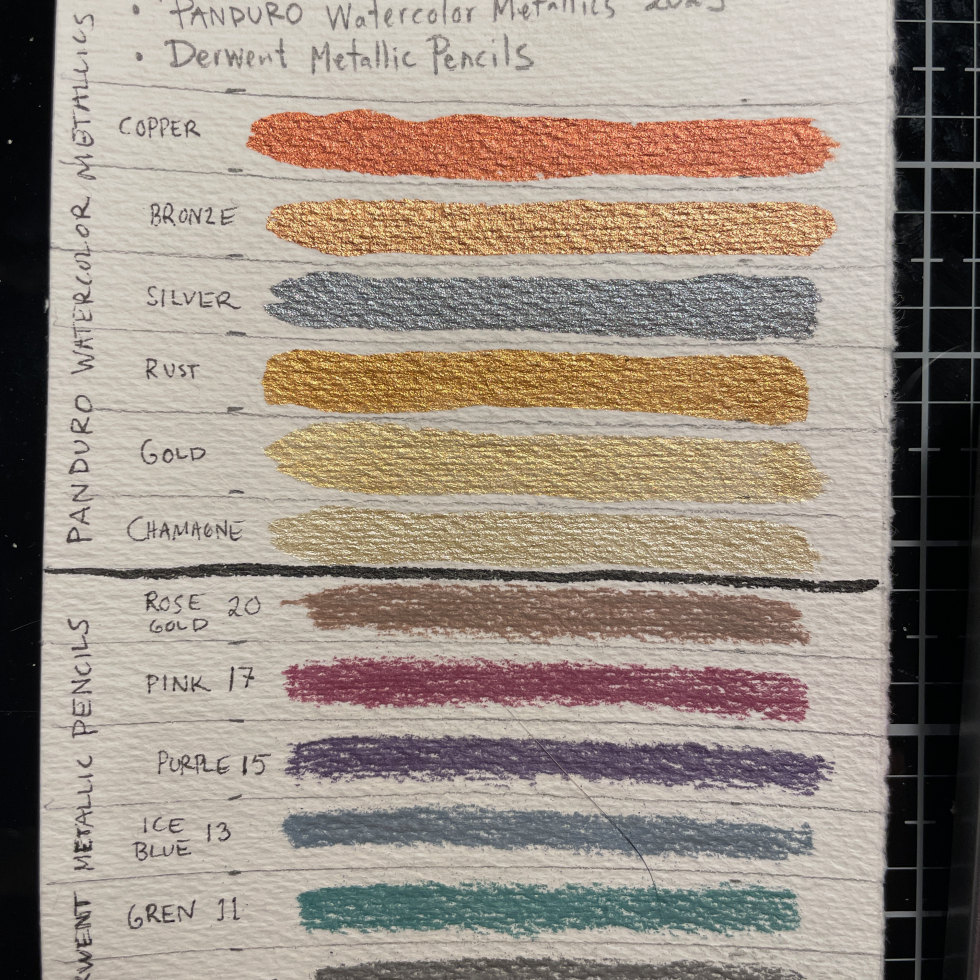 • PANDURO Watercolor Metallics 2023
• Derwent Metallic Pencils
PANDURO WATERCOLOR METALLICS
COPPER
BRONZE
SILVER
RUST
GOLD
CHAMAGNE
DERWENT METALLIC PENCILS
ROSE 20
GOLD
PINK 17
PURPLE 15
ICE 13
BLUE
GREN 11